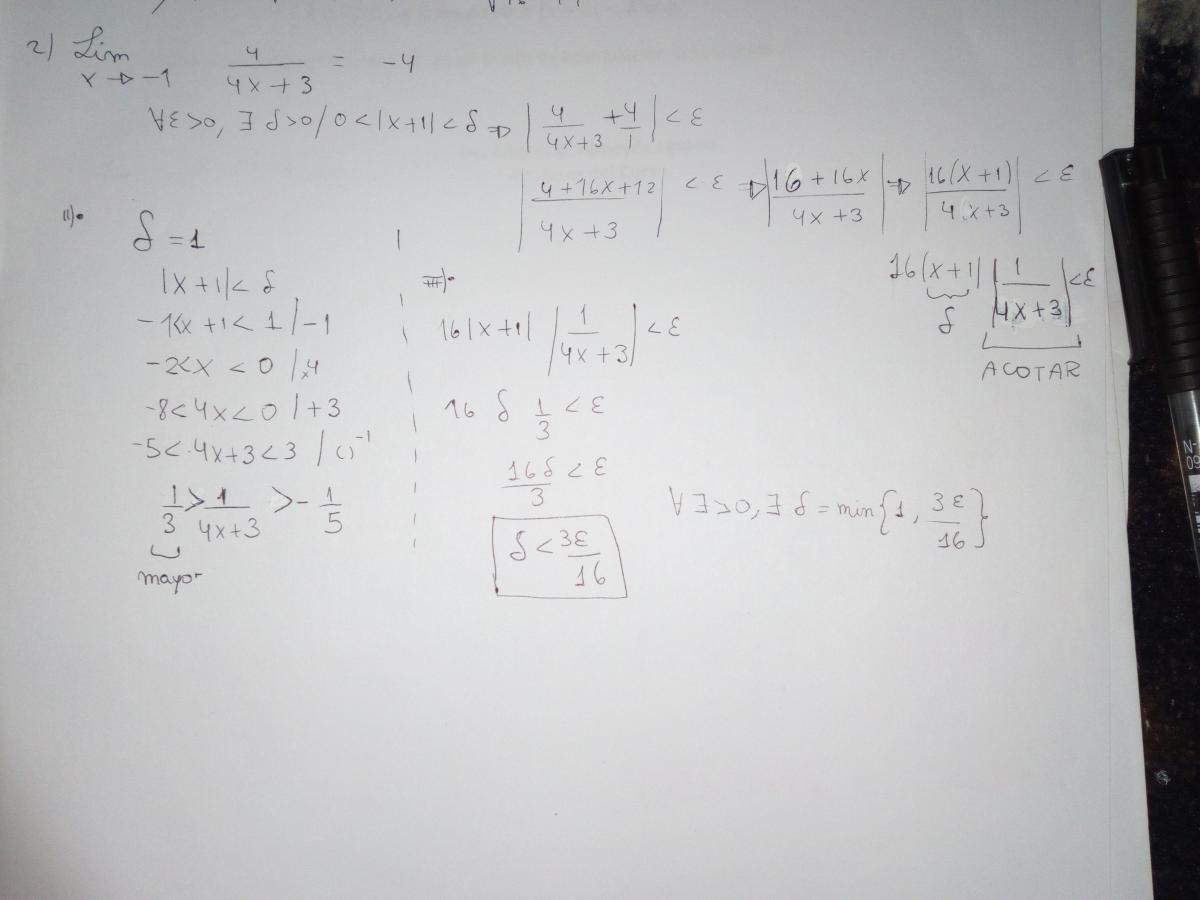 2) Lim 4/(4x+3) = -4
x→-1
∀ε>0, ∃ δ>0 / 0<|x+1|<δ ⇒ |4/(4x+3) + 4/1| < ε
|(4+16x+12)/(4x+3)| < ε ⇒ |(16+16x)/(4x+3)| ⇒ |16(x+1)/(4x+3)| < ε
16|x+1| |1/(4x+3)| < ε
δ
ACOTAR
II)•
δ = 1
|x+1| < δ
-1<x+1<1 /-1
-2<x<0 /x4
-8<4x<0 /+3
-5<4x+3<3 /()⁻¹
1/3 > 1/(4x+3) > -1/5
mayor
III)•
16|x+1| |1/(4x+3)| < ε
16 δ 1/3 < ε
16δ/3 < ε
δ < 3ε/16
∀ ∃>0, ∃ δ = min{1, 3ε/16}
N-
09